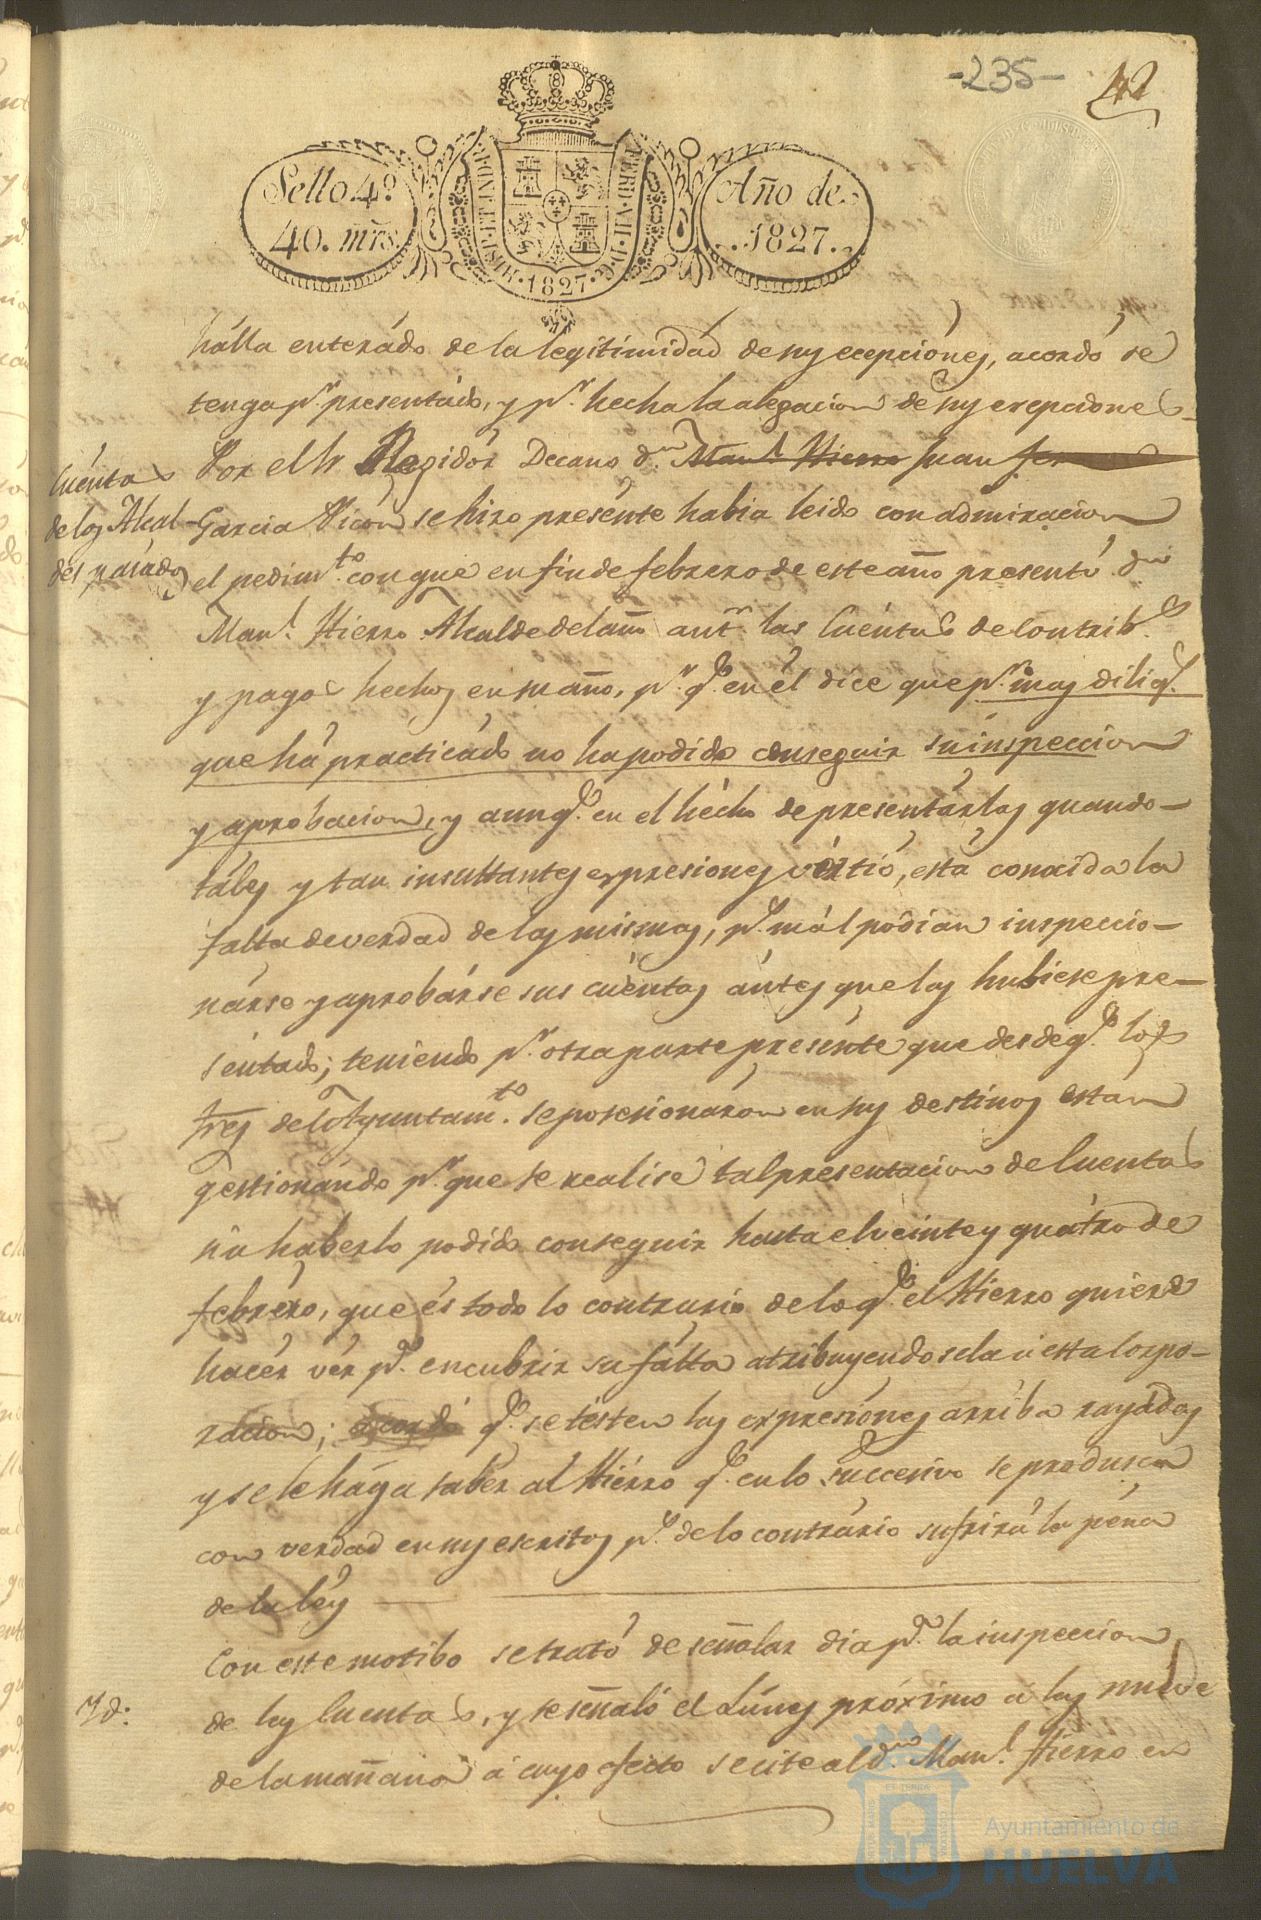 -235-
42
Sello 4º
40. mrs.
HISP. ET IND. R.
FERD. VII. D. G.
1827
Año de
1827.
hálla enterádo de la legitimidád de sus ecepciónes, acordó se
tenga pr. presentádo, y pr. hecha la alegacion de sus ecepciones
Cuéntas
de los Alcal-
des pasádos
Por el Sr Regidór Decano dn. Manl. Hierro Juan
Garcia Vicon se hizo presénte habia leido con admiracion
el pedimto. con que en fin de febrero de este año presentó dn
Manl. Hierro Alcalde del año antr. las Cuéntas de Contribs.
y pagos hechos en su año, pr. qe. en él dice que pr. mas diligs.
que há practicádo no ha podido conseguir su inspeccion
y aprobacion, y aunqe. en el hécho de presentárlas quando
táles y tan insultantes expresiones virtió, está conocida la
falta de verdad de las mismas, ps. mál podian inspeccio-
nárse y aprobárse sus cuéntas ántes que las hubiese pre-
sentado; teniendo pr. otra parte presénte que desde qe. los
Sres del Ayuntamto. se posesionarón en sus destinos están
gestionándo pr. que se realise tal presentacion de Cuentas
sin haberlo podido conseguir hasta el veinte y quátro de
febréro, que és todo lo contrario de lo qe. el Hierro quiere
hacér vér pa. encubrir su fálta atribuyendosela á esta Corpo-
racion; acordó qe. se tésten las expresiónes arriba rayádas
y se le hága saber al Hiérro qe. en lo succesivo se produsca
con verdad en sus escritos ps. de lo contrário sufrirá la péna
de la léy
Id:
Con este motibo se trató de señalar dia pa. la inspeccion
de las Cuentas, y se señaló el Lúnes próximo á las nueve
de la mañana á cuyo efecto se cite al dn. Manl. Hierro en
Ayuntamiento de
HUELVA